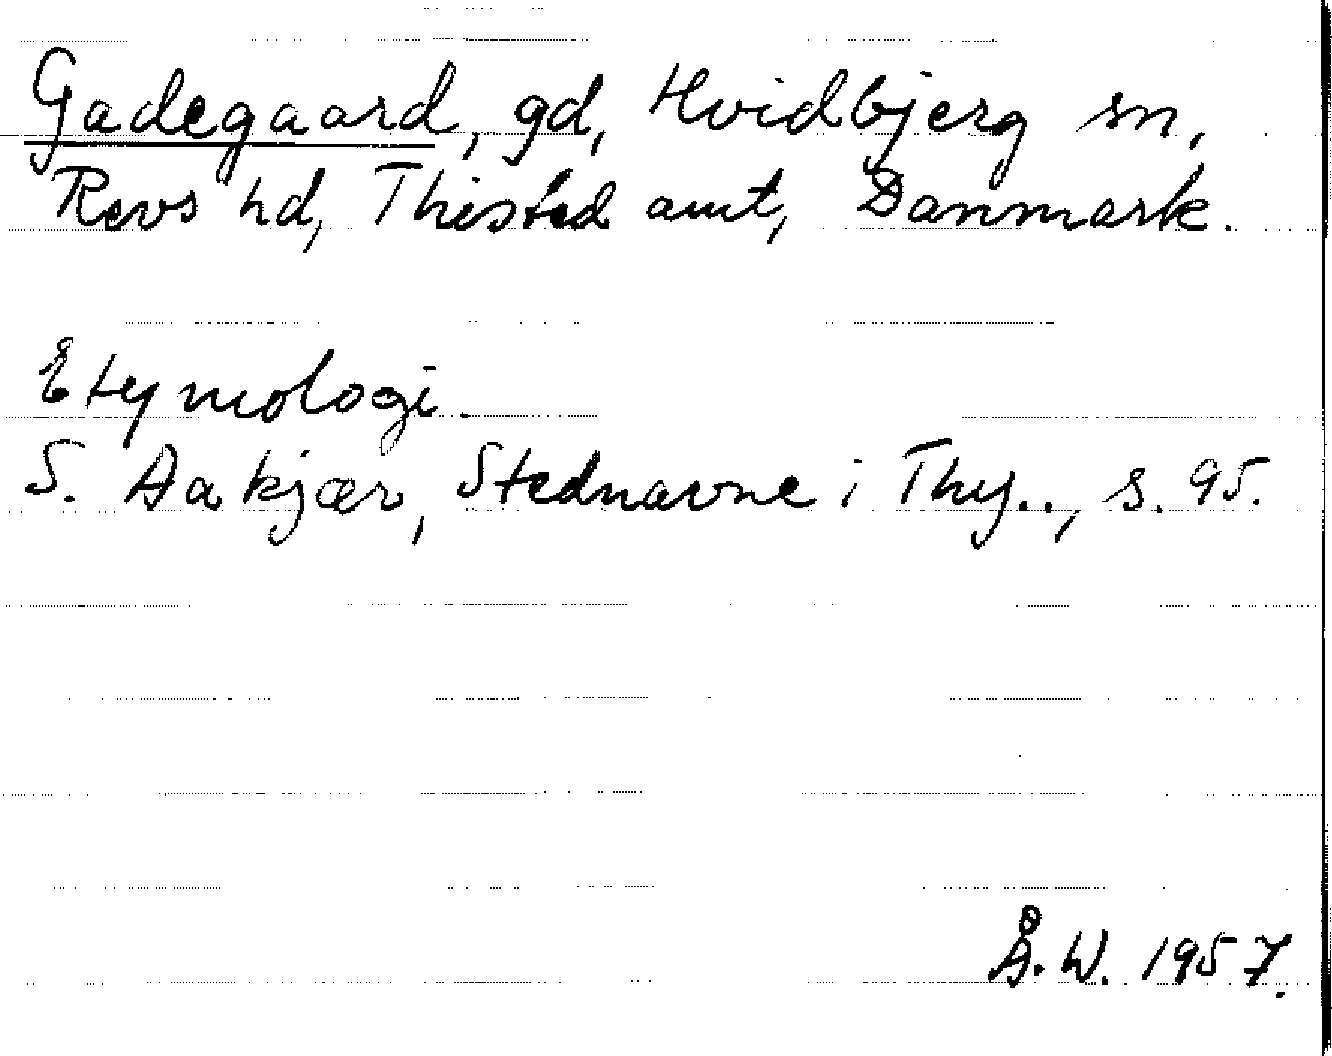 Gadegaard, gd, Hvidbjerg sn,
Revs hd, Thisted amt, Danmark.
Etymologi.
S. Aakjær, Stednavne i Thy.., s. 95.
Å. W. 1957.